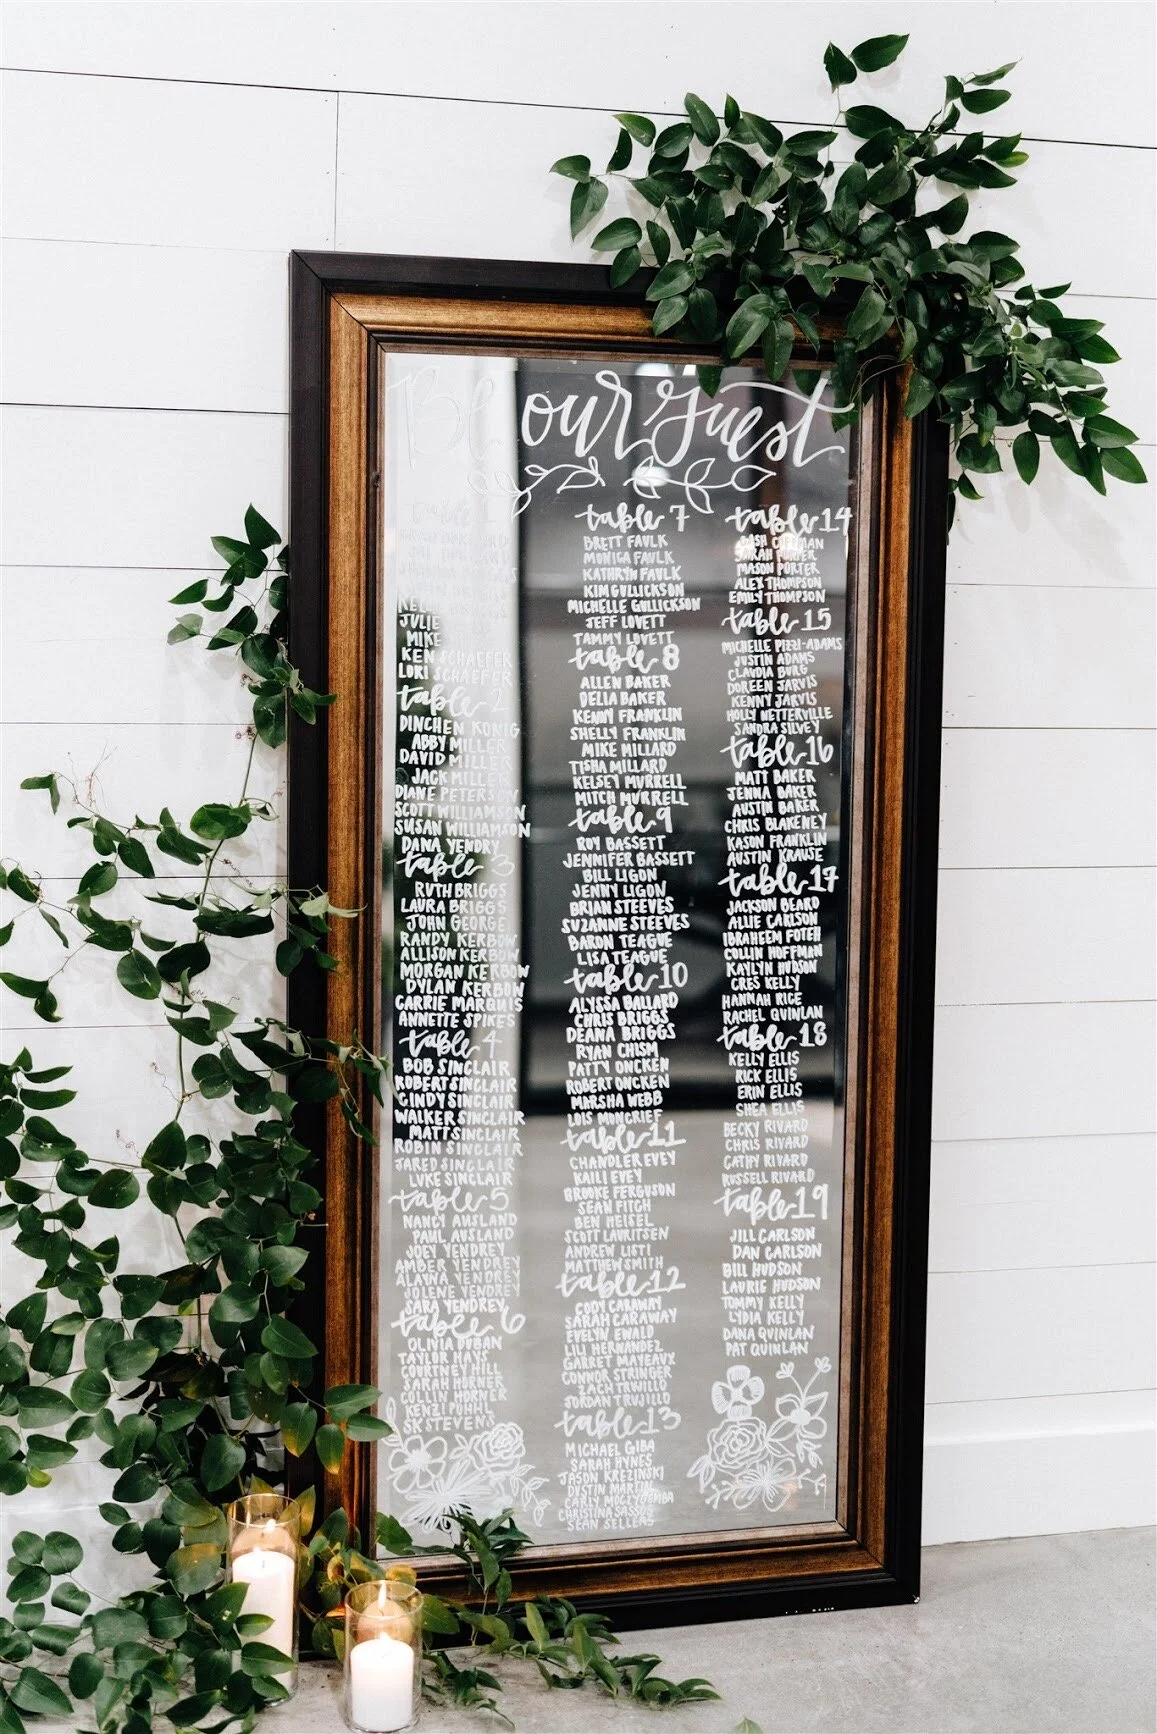 Be our guest
table 1
JULIE
MIKE
KEN SCHAEFER
LORI SCHAEFER
table 2
DINCHEN KONIG
ABBY MILLER
DAVID MILLER
JACK MILLER
DIANE PETERSON
SCOTT WILLIAMSON
SUSAN WILLIAMSON
DANA YENDRY
table 3
RUTH BRIGGS
LAURA BRIGGS
JOHN GEORGE
RANDY KERBOW
ALLISON KERBOW
MORGAN KERBOW
DYLAN KERBOW
CARRIE MARQUIS
ANNETTE SPIKES
table 4
BOB SINCLAIR
ROBERT SINCLAIR
CINDY SINCLAIR
WALKER SINCLAIR
MATT SINCLAIR
ROBIN SINCLAIR
JARED SINCLAIR
LUKE SINCLAIR
table 5
NANCY AUSLAND
PAUL AUSLAND
JOEY YENDREY
AMBER YENDREY
ALAYNA YENDREY
JOLENE YENDREY
SARA YENDREY
table 6
OLIVIA DUBAN
TAYLOR HAYS
COURTNEY HILL
SARAH HORNER
COLLIN HORNER
KENZI POHHL
SK STEVENS
table 7
BRETT FAULK
MONICA FAULK
KATHRYN FAULK
KIM GULLICKSON
MICHELLE GULLICKSON
JEFF LOVETT
TAMMY LOVETT
table 8
ALLEN BAKER
DELIA BAKER
KENNY FRANKLIN
SHELLY FRANKLIN
MIKE MILLARD
TISHA MILLARD
KELSEY MURRELL
MITCH MURRELL
table 9
ROY BASSETT
JENNIFER BASSETT
BILL LIGON
JENNY LIGON
BRIAN STEEVES
SUZANNE STEEVES
BARON TEAGUE
LISA TEAGUE
table 10
ALYSSA BALLARD
CHRIS BRIGGS
DEANA BRIGGS
RYAN CHISM
PATTY ONCKEN
ROBERT ONCKEN
MARSHA WEBB
LOIS MONCRIEF
table 11
CHANDLER EVEY
KAILI EVEY
BROOKE FERGUSON
SEAN FITCH
BEN HEISEL
SCOTT LAURITSEN
ANDREW LISTI
MATTHEW SMITH
table 12
CODY CARAWAY
SARAH CARAWAY
EVELYN EWALD
LILI HERNANDEZ
GARRET MAYEAUX
CONNOR STRINGER
ZACH TRUJILLO
JORDAN TRUJILLO
table 13
MICHAEL GIBA
SARAH HYNES
JASON KREZINSKI
DUSTIN MARTIN
CARLY MOCZYGEMBA
CHRISTINA SASSO
SEAN SELLERS
table 14
SARAH PORTER
MASON PORTER
ALEX THOMPSON
EMILY THOMPSON
table 15
MICHELLE PIZZI-ADAMS
JUSTIN ADAMS
CLAUDIA BURG
DOREEN JARVIS
KENNY JARVIS
HOLLY NETTERVILLE
SANDRA SILVEY
table 16
MATT BAKER
JENNA BAKER
AUSTIN BAKER
CHRIS BLAKENEY
KASON FRANKLIN
AUSTIN KRAUSE
table 17
JACKSON BEARD
ALLIE CARLSON
IBRAHEEM FOTEH
COLLIN HOFFMAN
KAYLYN HUDSON
CRES KELLY
HANNAH RICE
RACHEL QUINLAN
table 18
KELLY ELLIS
RICK ELLIS
ERIN ELLIS
SHEA ELLIS
BECKY RIVARD
CHRIS RIVARD
CATHY RIVARD
RUSSELL RIVARD
table 19
JILL CARLSON
DAN CARLSON
BILL HUDSON
LAURIE HUDSON
TOMMY KELLY
LYDIA KELLY
DANA QUINLAN
PAT QUINLAN